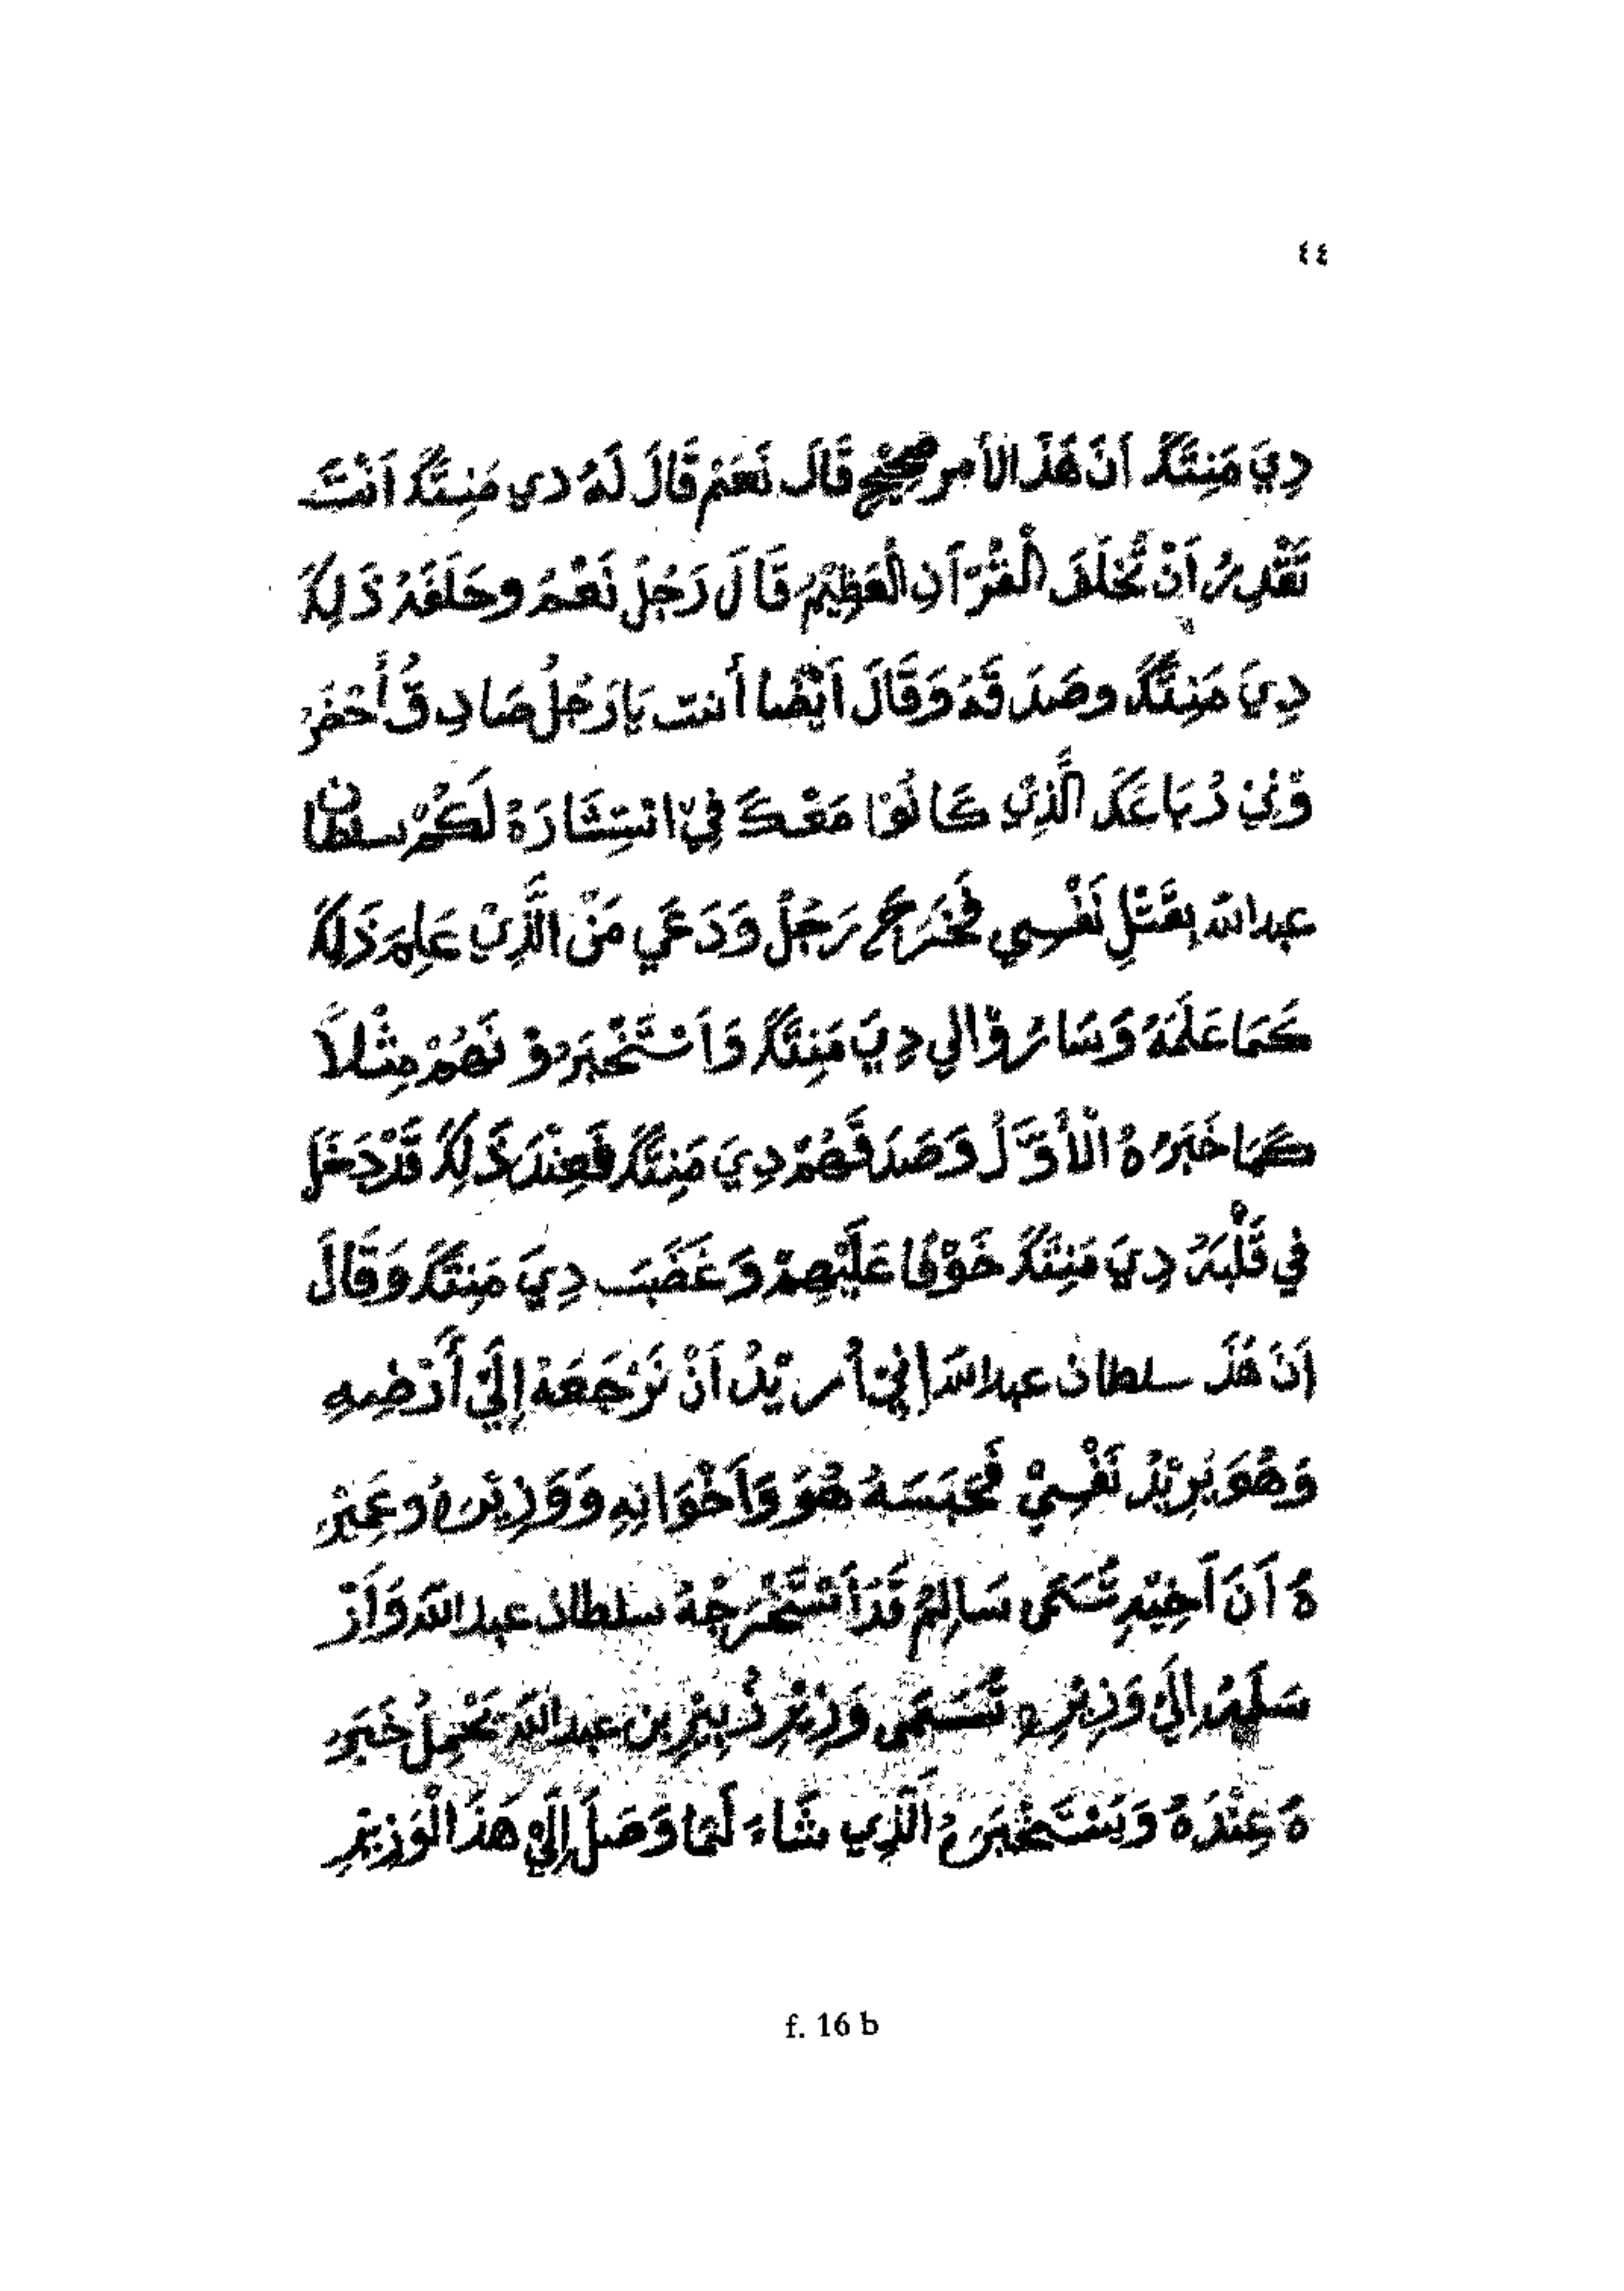 ٤٤
دِيَ مَنِتَكَ اَنَّ هَذَ الاَمر صحيح قَالَ نَعَمْ قَالَ لَهُ دي مَنِتَكَ اَنْتَ
تَقْدِرُ اَنْ تُحْلَفَ الْقُرْآنِ الْعَظِيْمُ قَالَ رَجُلُ نَعْمُ وحَلَفَهُ ذَلِكَ
دِيَ مَنِتَكَ وصَدَقَهُ وَقَالَ اَيْضًا أنت يَا رَجُلُ صَادِقٌ أُحْضَرُ
وْنِيْ رُبَاعَكَ الَّذِيْ كَانُوْا مَعْكَ فِيْ انْتِشَارَةُ لَكُمْ سلطان
عبد الله بِقَتْلِ نَفْسِي فَخَرَجَ رَجُلُ وَدَعَي مَنْ الَّذِيْ عَلِمَ ذَلِكَ
كَمَا عَلَمَهُ وَسَارُوْا الي دِيَ مَنِتَكَ وَاَسْتَخْبَرُوْنَهُمْ مِثْلاً
كَمَا خَبَرُهُ الْأَوَّلُ وَصَدَقَهُمْ دِيَ مَنِتَكَ فَعِنْدَ ذَلِكَ قَدْ دَخَلَ
فِي قَلْبَهُ دِيَ مَنِتَكَ خَوْفًا عَلَيْهِمْ وَغَضَبَ دِيَ مَنِتَكَ وَقَالَ
اَنَ هَذَ سلطان عبد الله اِنِيْ اُرِيْدُ اَنْ نَرْجَعَهُ اِلَيْ أَرْضِهِ
وَهُوَ يُرِيْدُ نَفْسِيْ فَحَبَسَهُ هُوَ وَاَخْوَانِهِ وَوَزِيْرِهُ وغَيْرُ
هُ اَنَ اَخِيْهِ تُسَمَى سَالِمُ قَدَ اَسْتَخْرَجْهُ سلطان عبد الله وَاَرْ
سَلَهُ اِلَيْ وَزِيْرِهِ تُسَمَى وَزِيْرُ زُبَيْرِ بن عبد الله تَحْمِلُ خَبَرُ
هُ عِنْدَهُ وَيَسْتَخْبَرَهُ اَلَّذِي شَاءَ لَمَا وَصَلَ اِلَيْ هَذَ الْوَزِيْرِ
f. 16 b